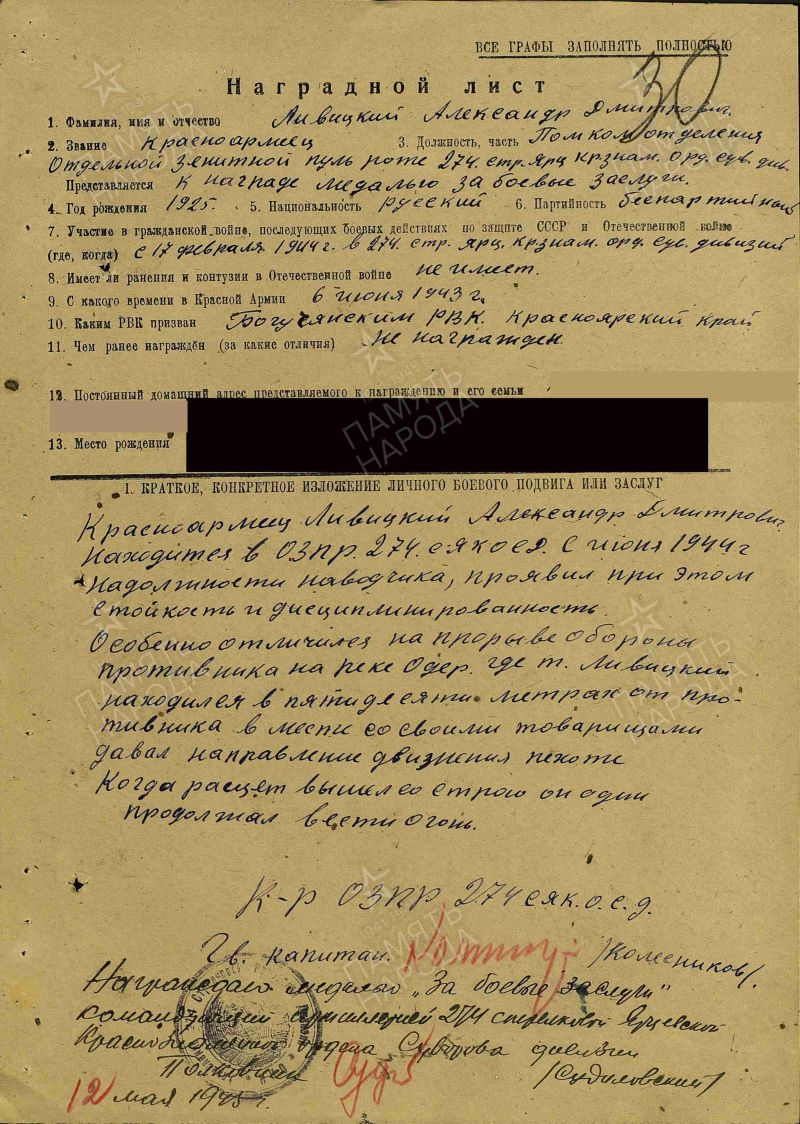 ВСЕ ГРАФЫ ЗАПОЛНЯТЬ ПОЛНОСТЬЮ
30
Наградной лист
1. Фамилия, имя и отчество Ливицкий Александр Дмитрович.
2. Звание Красноармеец 3. Должность, часть Пом ком отделения
Отдельной Зенитной пуль роте 274. стр. Ярц. кр знам. орд. сув. див.
Представляется к награде медалью за боевые заслуги.
4. Год рождения 1925. 5. Национальность русский 6. Партийность беспартийный
7. Участие в гражданской войне, последующих боевых действиях по защите СССР и Отечественной войне
(где, когда) с 17 февраля 1944 г. в 274. стр. ярц. кр знам. орд. сув. дивизий
8. Имеет ли ранения и контузии в Отечественной войне не имеет.
9. С какого времени в Красной Армии 6 июня 1943 г.
10. Каким РВК призван Богучянским РВК. Красноярский край
11. Чем ранее награждён (за какие отличия) Не награжден.
12. Постоянный домашний адрес представляемого к награждению и его семьи
13. Место рождения
I. КРАТКОЕ, КОНКРЕТНОЕ ИЗЛОЖЕНИЕ ЛИЧНОГО БОЕВОГО ПОДВИГА ИЛИ ЗАСЛУГ
Красноармеец Ливицкий Александр Дмитрович
находится в ОЗПР. 274. с я к о с д. С июня 1944 г
на должности наводчика, проявил при этом
стойкость и дисциплинированность.
Особенно отличился на прорыве обороны
противника на реке Одер. где т. Ливицкий
находился в пятидесяти метрах от про-
тивника в месте со своими товарищами
давал направление движения пехоте
Когда расщет вышел со строю он один
продолжал вести огонь.
К-р ОЗПР 274 с я к. о. с. д.
Гв. капитан. /Колесников/.
Награждаю медалью „За боевые заслуги"
командующий артиллерией 274 стрелковой Ярцевской
Краснознаменной ордена Суворова дивизии
Полковник /Судиловский/
12 мая 1945 г.
ПАМЯТЬ НАРОДА